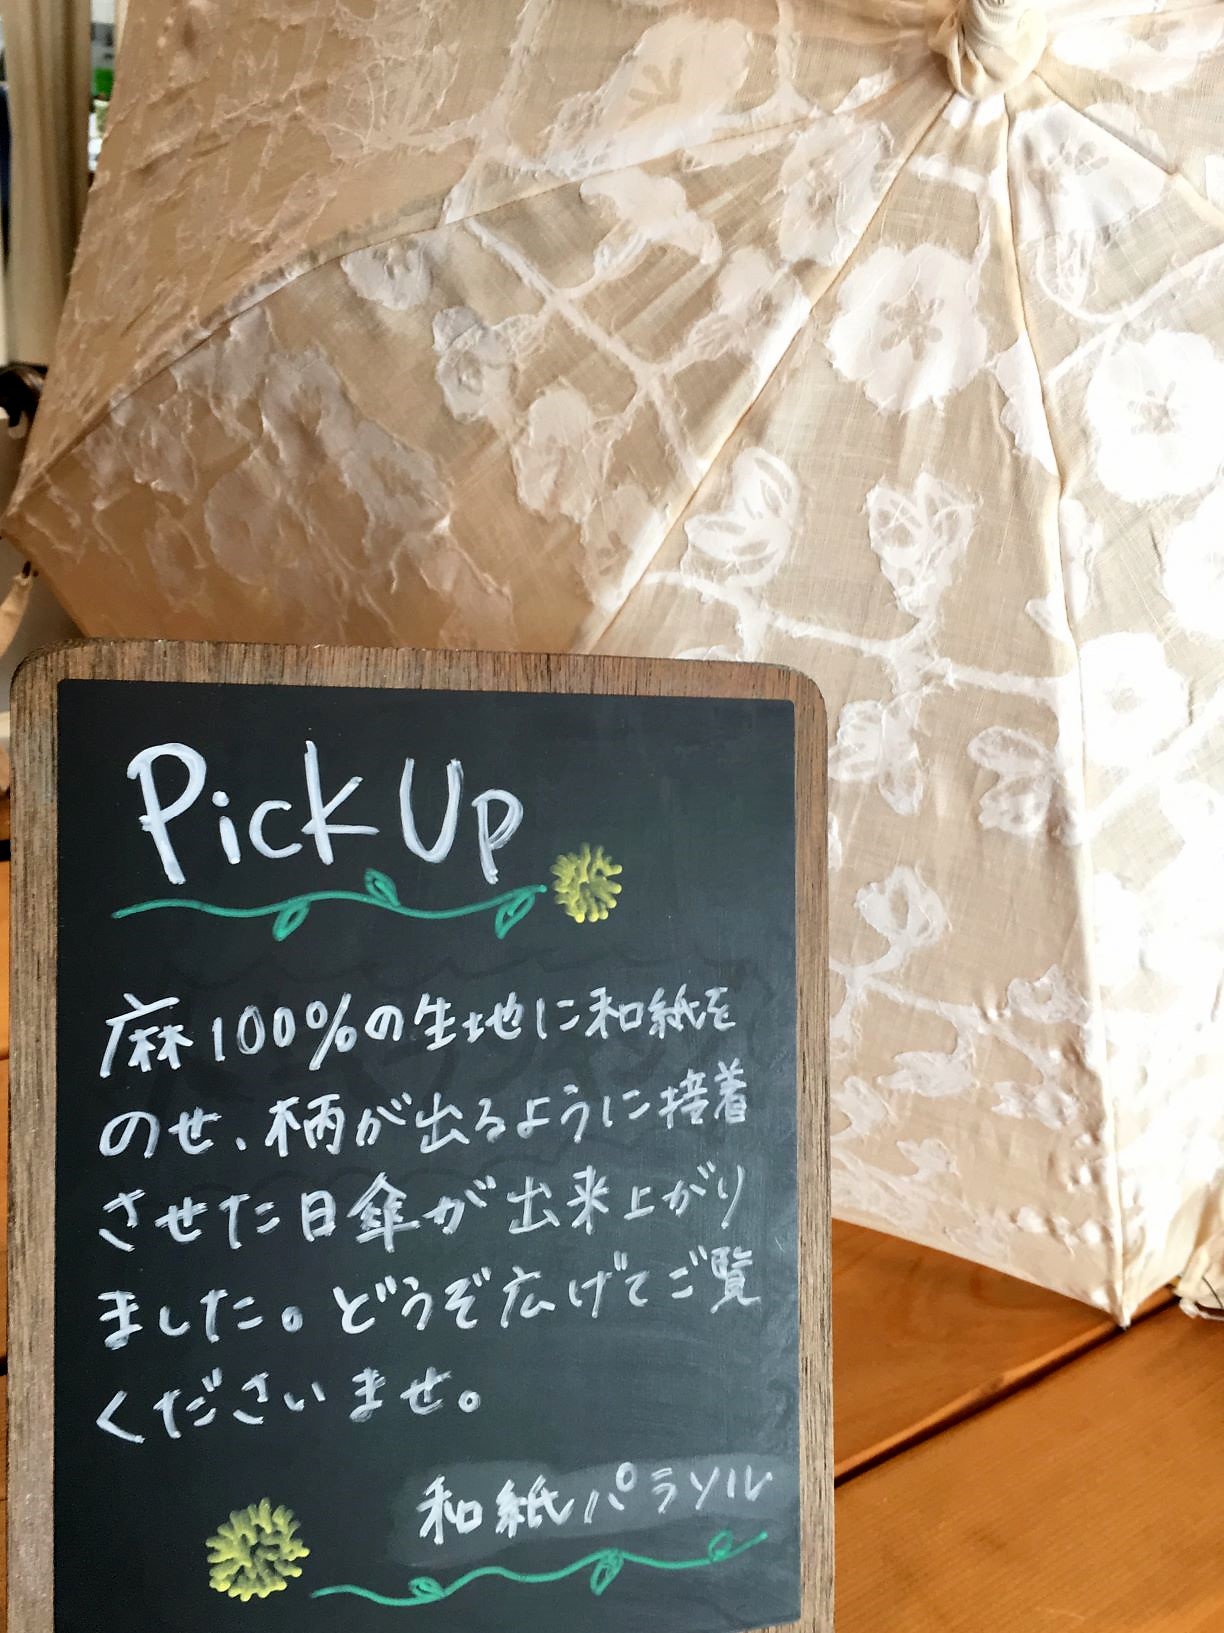 Pick Up
麻100%の生地に和紙を
のせ、柄が出るように接着
させた日傘が出来上がり
ました。どうぞ広げてご覧
くださいませ。
和紙パラソル